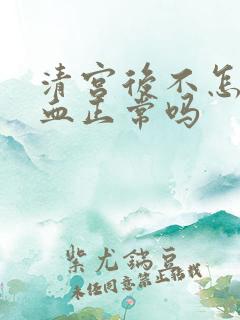 清宫后不怎
血正常吗
紫尤鍴豆
未经同意禁止转载